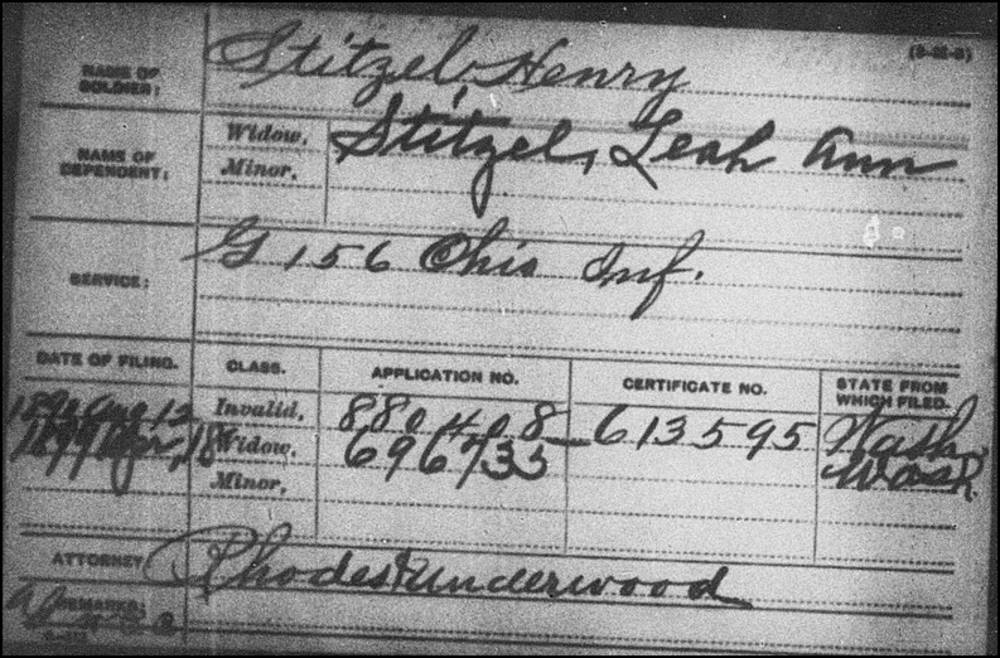 (3-22-3)
NAME OF SOLDIER: Stitzel Henry
NAME OF DEPENDENT: Widow, Stitzel, Leah Ann
Minor,
SERVICE: G 156 Ohio Inf.
DATE OF FILING. CLASS. APPLICATION NO. CERTIFICATE NO. STATE FROM WHICH FILED.
1890 Aug 12 Invalid, 880408 613595 Wash.
1899 Apr, 18 Widow, 696733 Wash.
Minor,
ATTORNEY Rhodes & Underwood
REMARKS: